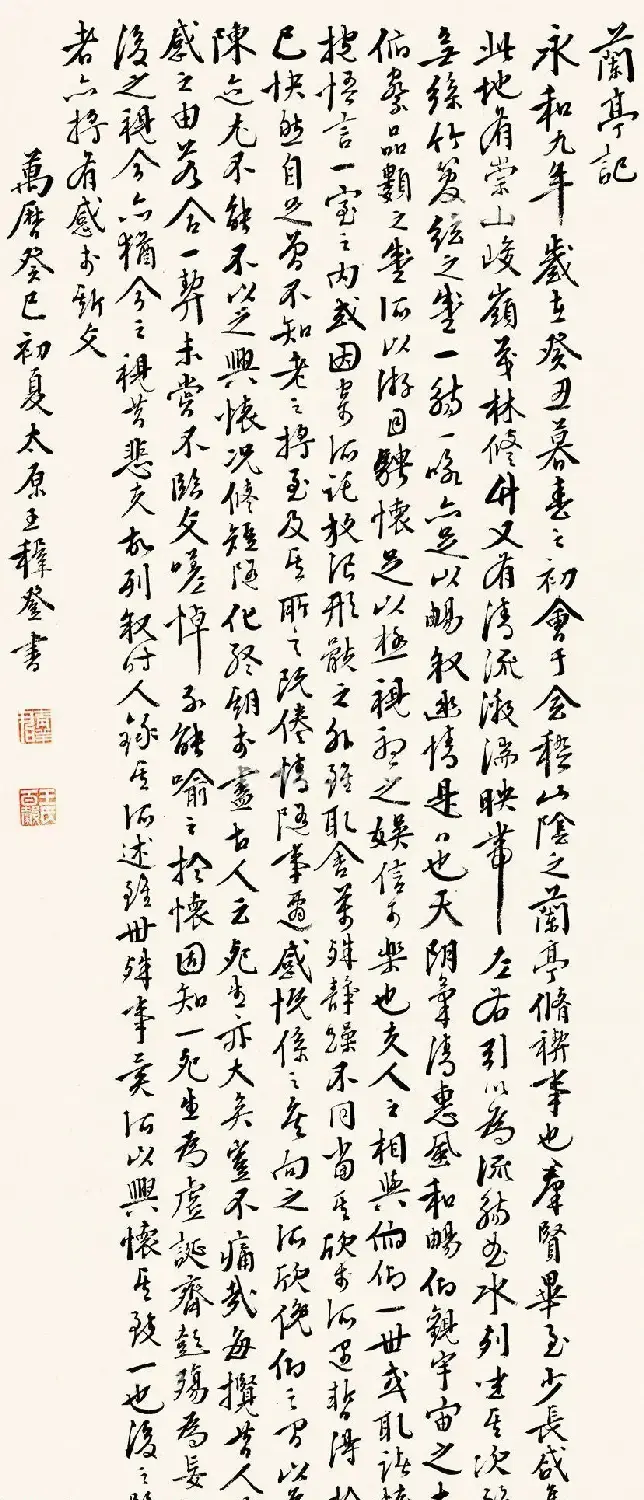 蘭亭記
永和九年歲在癸丑暮春之初會于會稽山陰之蘭亭脩禊事也羣賢畢至少長咸
此地有崇山峻嶺茂林修竹又有清流激湍映帶左右引以為流觴曲水列坐其次
無絲竹管弦之盛一觴一詠亦足以暢敘幽情是日也天朗氣清惠風和暢仰觀宇宙之
俯察品類之盛所以游目騁懷足以極視聽之娛信可樂也夫人之相與俯仰一世或取諸
抱悟言一室之內或因寄所託放浪形骸之外雖取舍萬殊靜躁不同當其欣於所遇暫得於
己快然自足曾不知老之將至及其所之既倦情隨事遷感慨係之矣向之所欣俛仰之間以
陳迹尤不能不以之興懷況修短隨化終期於盡古人云死生亦大矣豈不痛哉每攬昔人
感之由若合一契未嘗不臨文嗟悼不能喻之於懷固知一死生為虛誕齊彭殤為妄
後之視今亦猶今之視昔悲夫故列敘時人錄其所述雖世殊事異所以興懷其致一也後之
者亦將有感於斯文
萬曆癸巳初夏太原王穉登書
王氏百穀